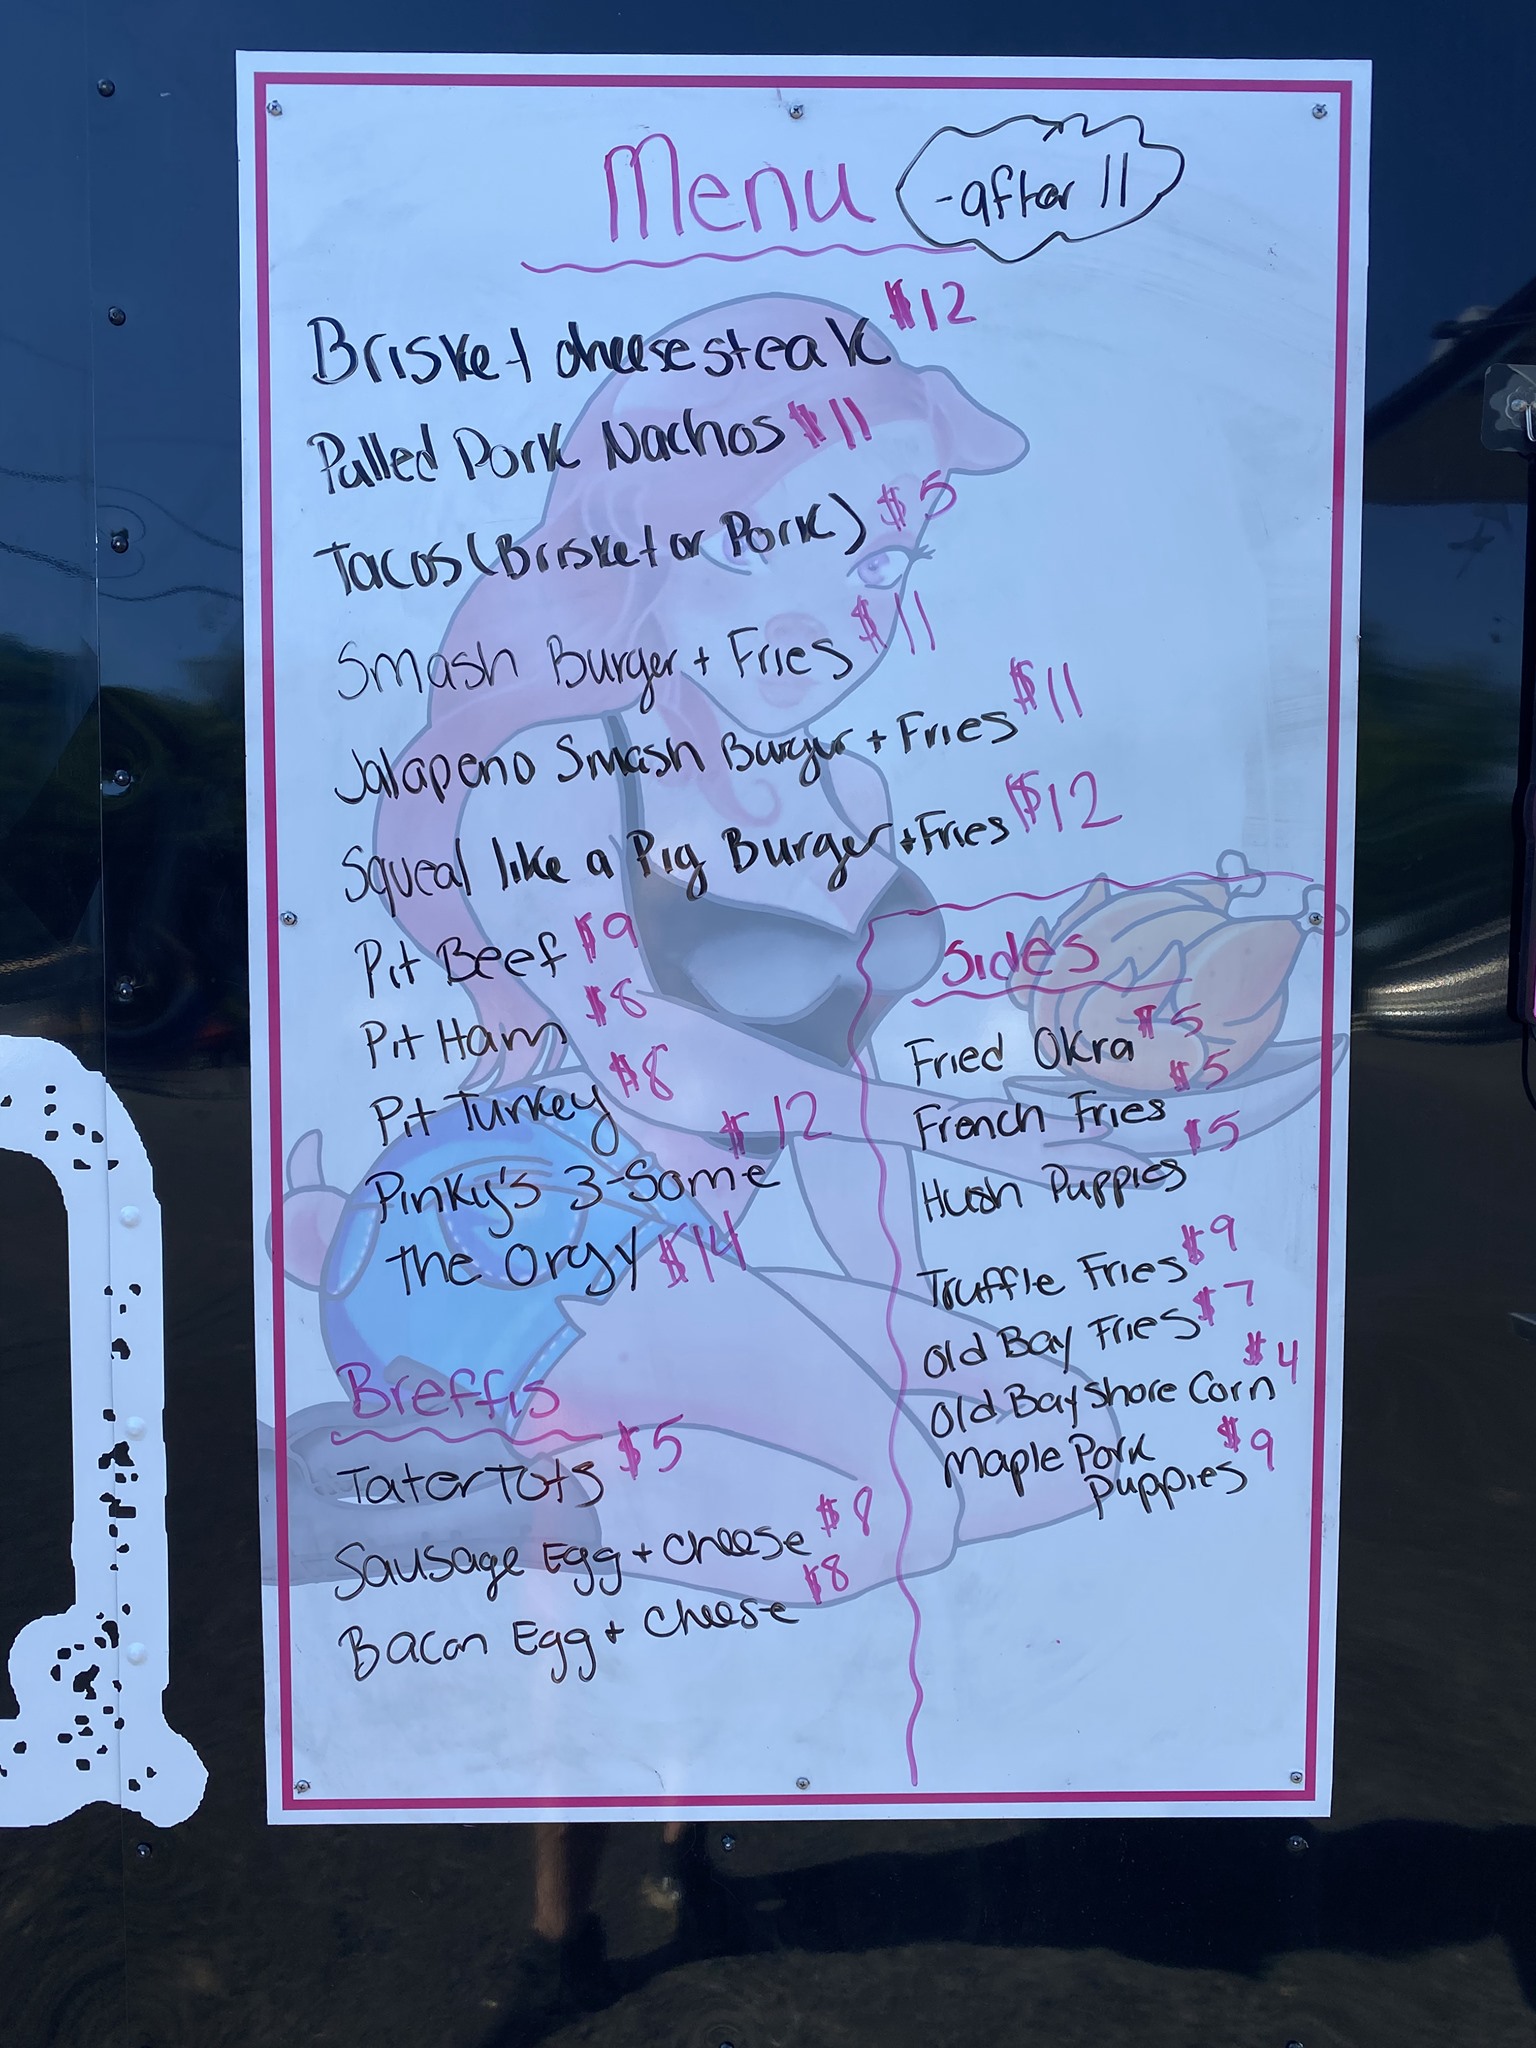 Menu
-after 11
Brisket cheesesteak $12
Pulled Pork Nachos $11
Tacos (Brisket or Pork) $5
Smash Burger + Fries $11
Jalapeno Smash Burger + Fries $11
Squeal like a Pig Burger + Fries $12
Pit Beef $9
Pit Ham $8
Pit Turkey $8
Pinky's 3-Some $12
The Orgy $14
Breffis
Tater Tots $5
Sausage Egg + Cheese $8
Bacon Egg + Cheese $8
Sides
Fried Okra $5
French Fries $5
Hush Puppies $5
Truffle Fries $9
Old Bay Fries $7
Old Bay Shore Corn $4
Maple Pork $9
Puppies